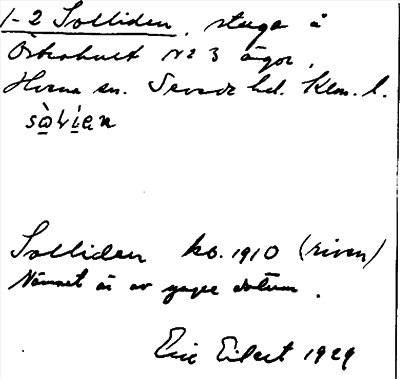 1-2 Solliden, stuga å
Österhult No 3 ägor,
Horna sn. Sevede hd. Klm. l.
sòlíen
Solliden ko. 1910 (riven)
Namnet är av yngre datum.
Eric Eilert 1929